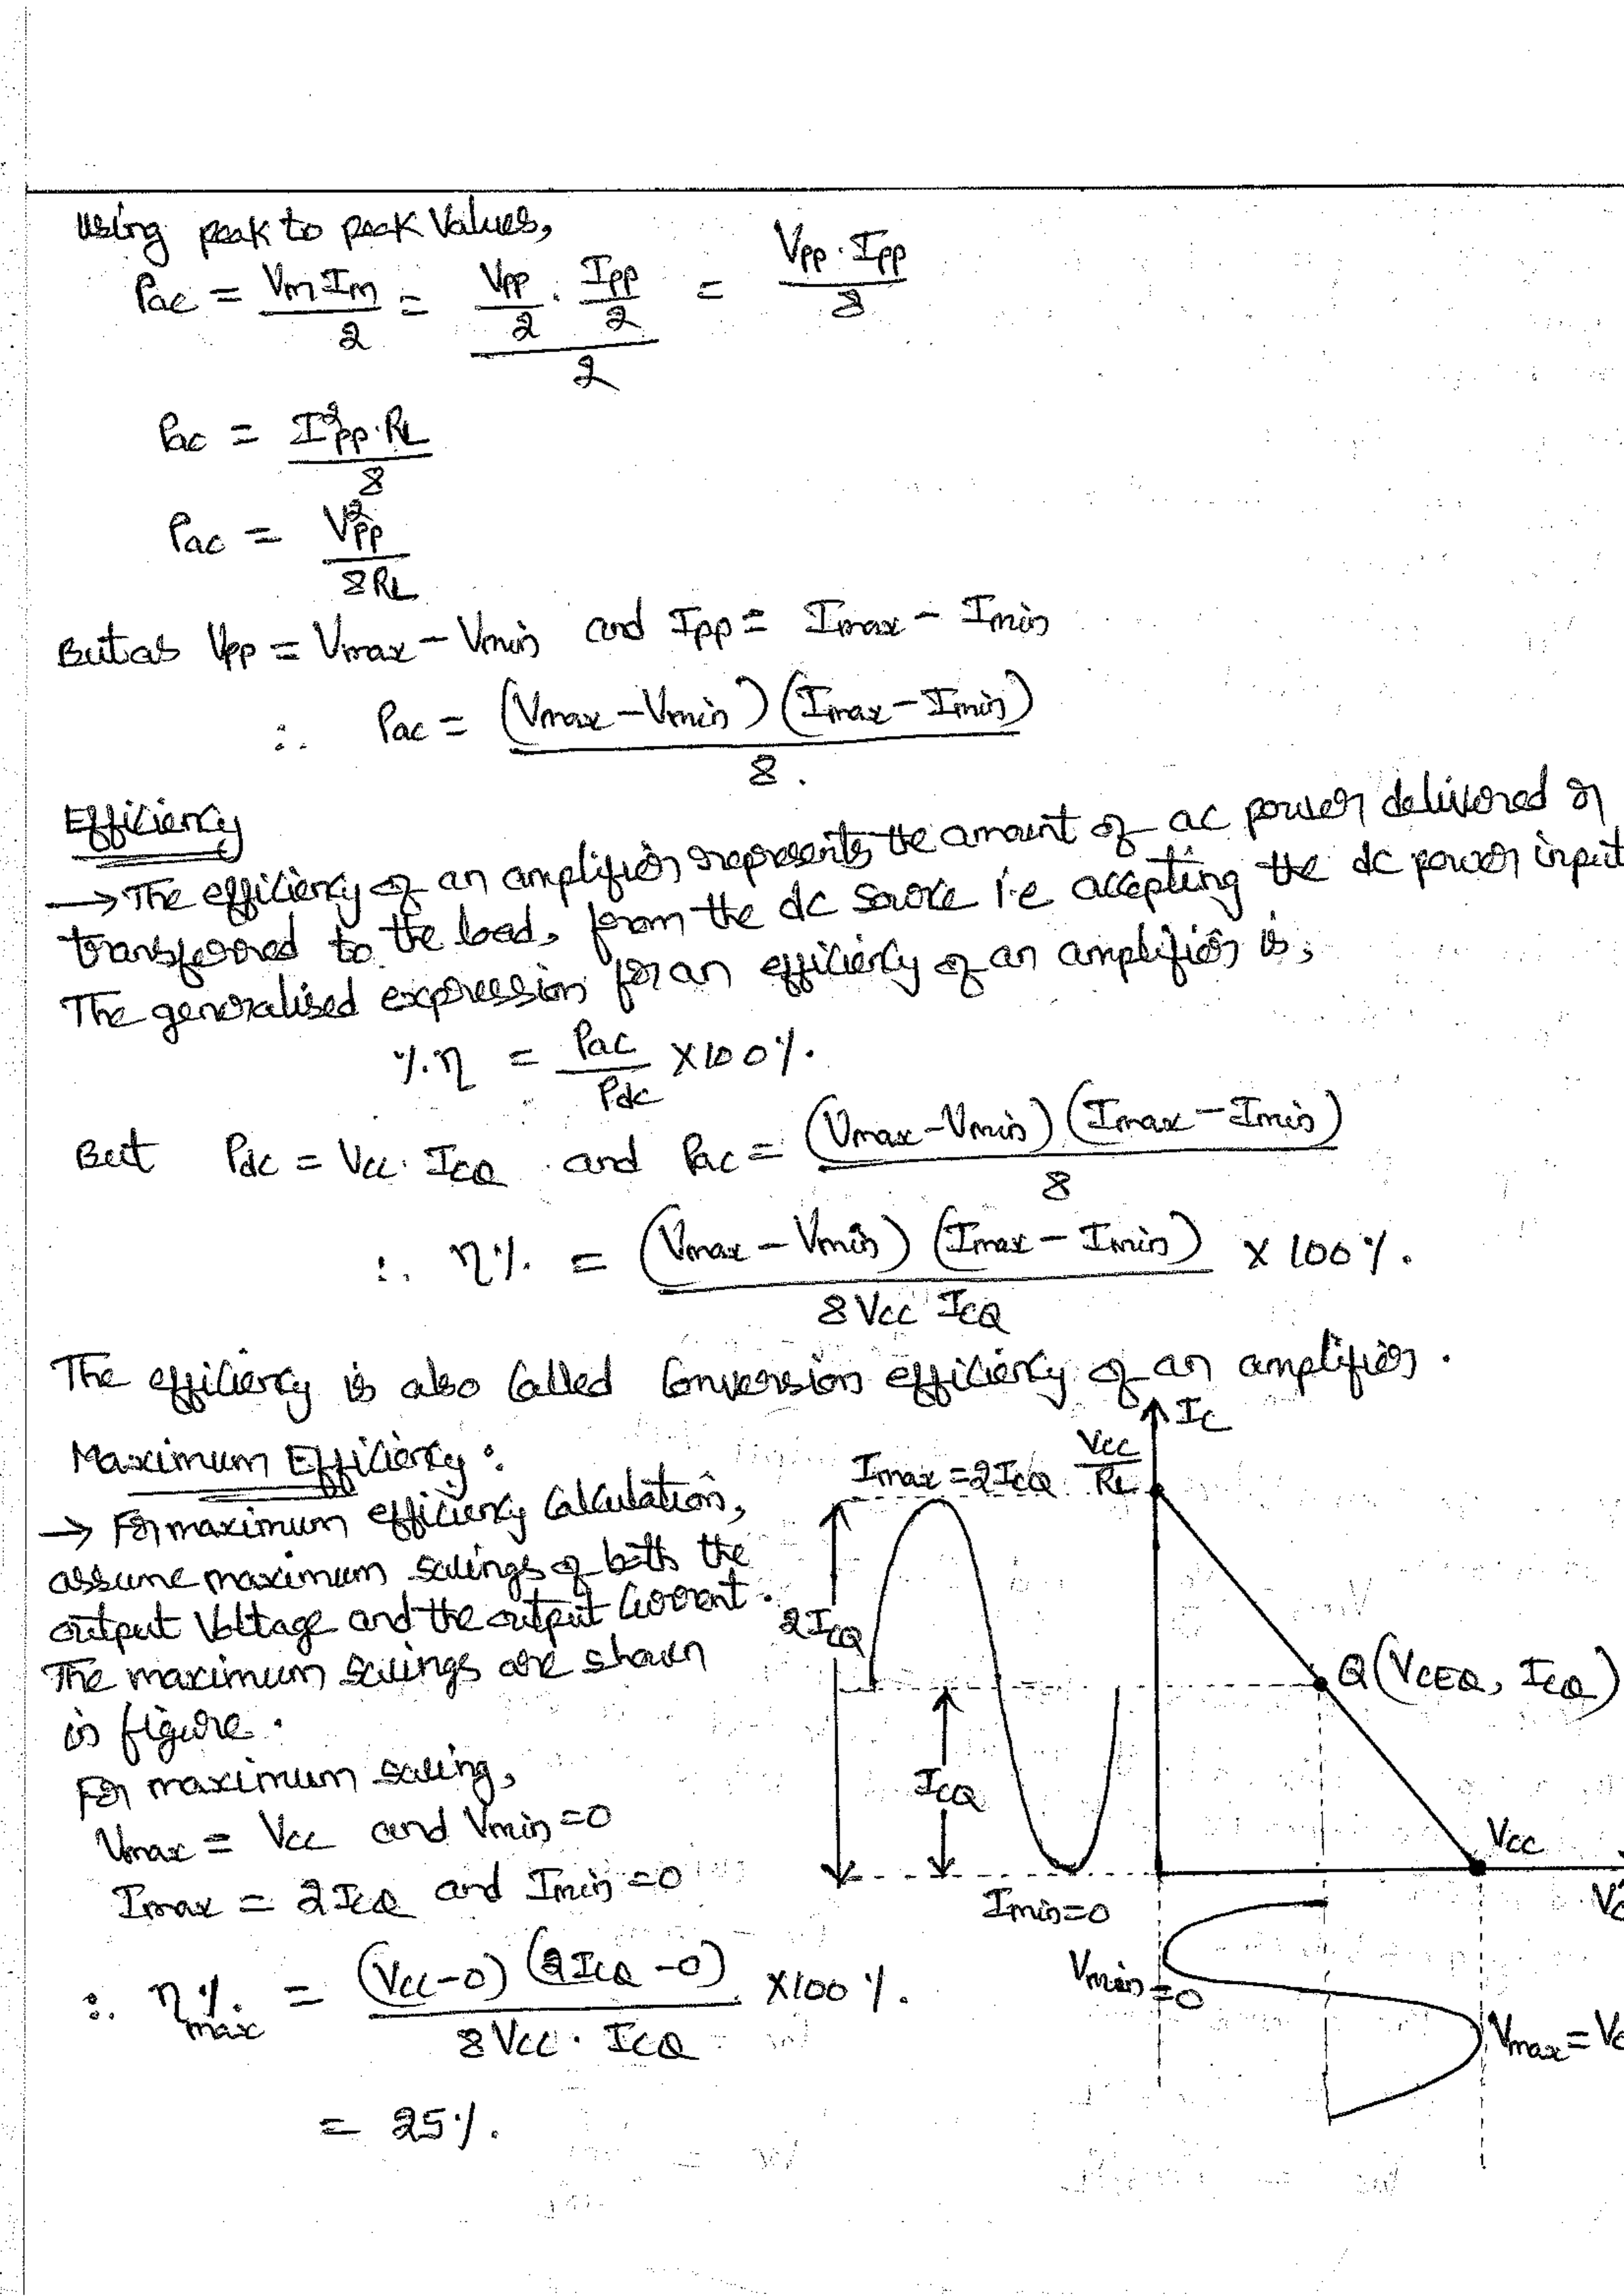 Using peak to peak Values,
Pac = VmIm/2 = (Vpp/2 · Ipp/2)/2 = Vpp · Ipp/8
Pac = I²pp · RL/8
Pac = V²pp/8RL
But as Vpp = Vmax − Vmin and Ipp = Imax − Imin
∴ Pac = (Vmax − Vmin) (Imax − Imin)/8.
Efficiency
→ The efficiency of an amplifier represents the amount of ac power delivered or
transferred to the load, from the dc source i.e accepting the dc power input
The generalised expression for an efficiency of an amplifier is,
% η = Pac/Pdc × 100 %.
But Pdc = Vcc · ICQ and Pac = (Vmax − Vmin) (Imax − Imin)/8
∴ η % = (Vmax − Vmin) (Imax − Imin)/8 Vcc ICQ × 100 %.
The efficiency is also called Conversion efficiency of an amplifier.
Maximum Efficiency :
→ For maximum efficiency Calculation,
assume maximum swings of both the
output Voltage and the output Current.
The maximum swings are shown
in figure.
For maximum swing,
Vmax = Vcc and Vmin = 0
Imax = 2ICQ and Imin = 0
∴ η %max = (Vcc − 0) (2ICQ − 0)/8 Vcc · ICQ × 100 %.
= 25 %.
IC
Imax = 2ICQ
Vcc/RL
2ICQ
Q (VCEQ, ICQ)
ICQ
Vcc
Imin = 0
Vmin = 0